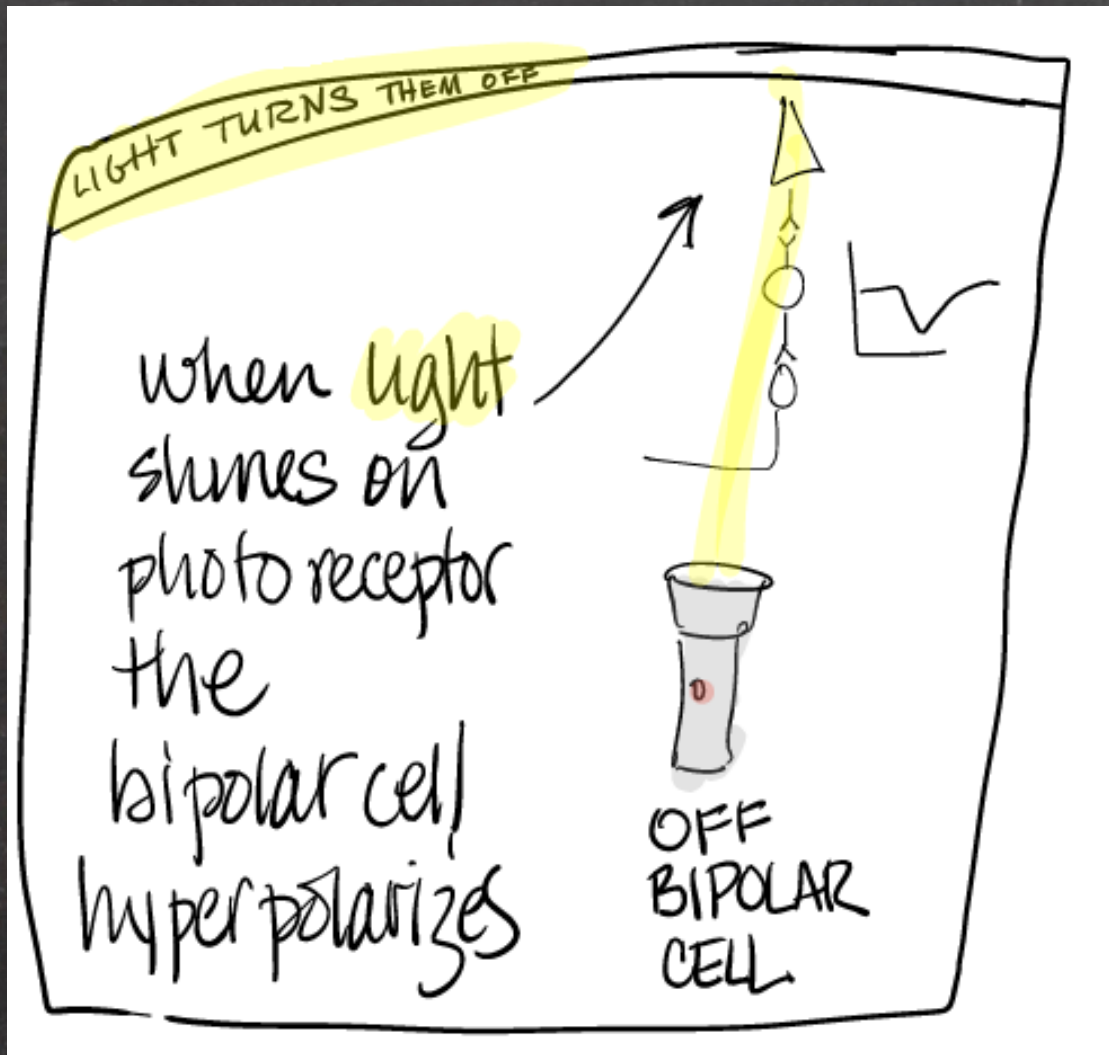 LIGHT TURNS THEM OFF
when light
shines on
photoreceptor
the
bipolar cell
hyperpolarizes
OFF
BIPOLAR
CELL